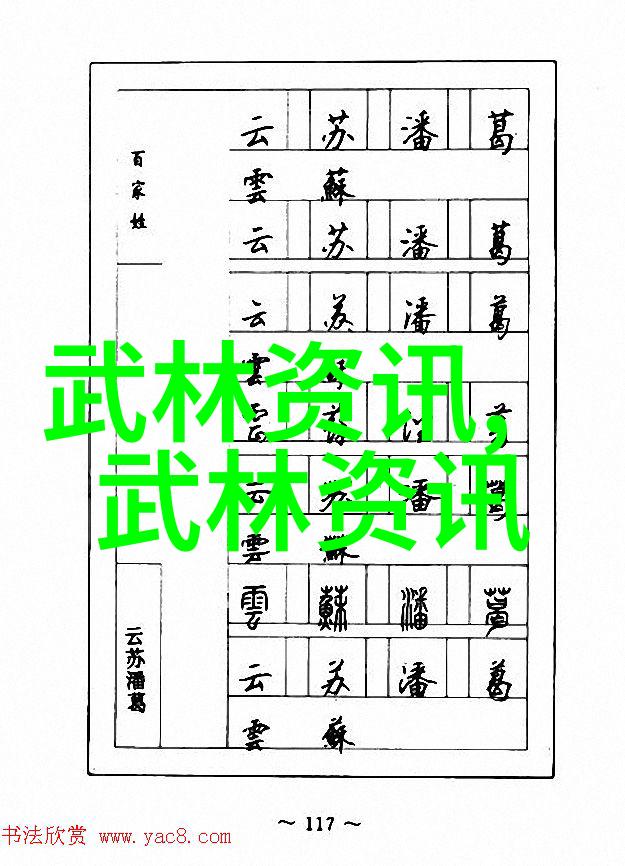 百家姓
云 苏 潘 葛
雲 蘇
云 苏 潘 葛
云 苏 潘 葛
雲
武林资讯,
云 苏 潘 葛
武林资讯
雲 蘇
雲 蘇 潘 葛
云苏潘葛
云 苏 潘 葛
雲 蘇
～ 117 ～
书法欣赏 www.yac8.com